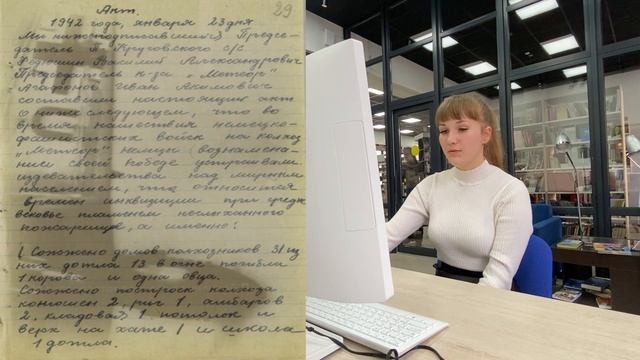 29
Акт.
1942 года, января 23 дня
Мы нижеподписавшиеся Предсе-
датель П. Круговского с/с
Федюшин Василий Александрович
Председатель к-за „Метеор"
Агафонов Иван Акимович
составили настоящий акт
о нижеследующем, что во
время нашествия немецко-
фашистских войск на колхоз
„Метеор" немцы в ознамена-
ние своей победы устраивали
издевательства над мирным
населением, что относится
времен инквизиции при средне
вековье пламенем неслыханного
пожарища, а именно:
1 Сожжено домов колхозников 31 из
них дотла 13 в огне погибла
1 корова и одна овца.
Сожжено построек колхоза
конюшен 2, риг 1, амбаров
2, кладовая 1 потолок и
верх на хате 1 и школа
1 дотла.